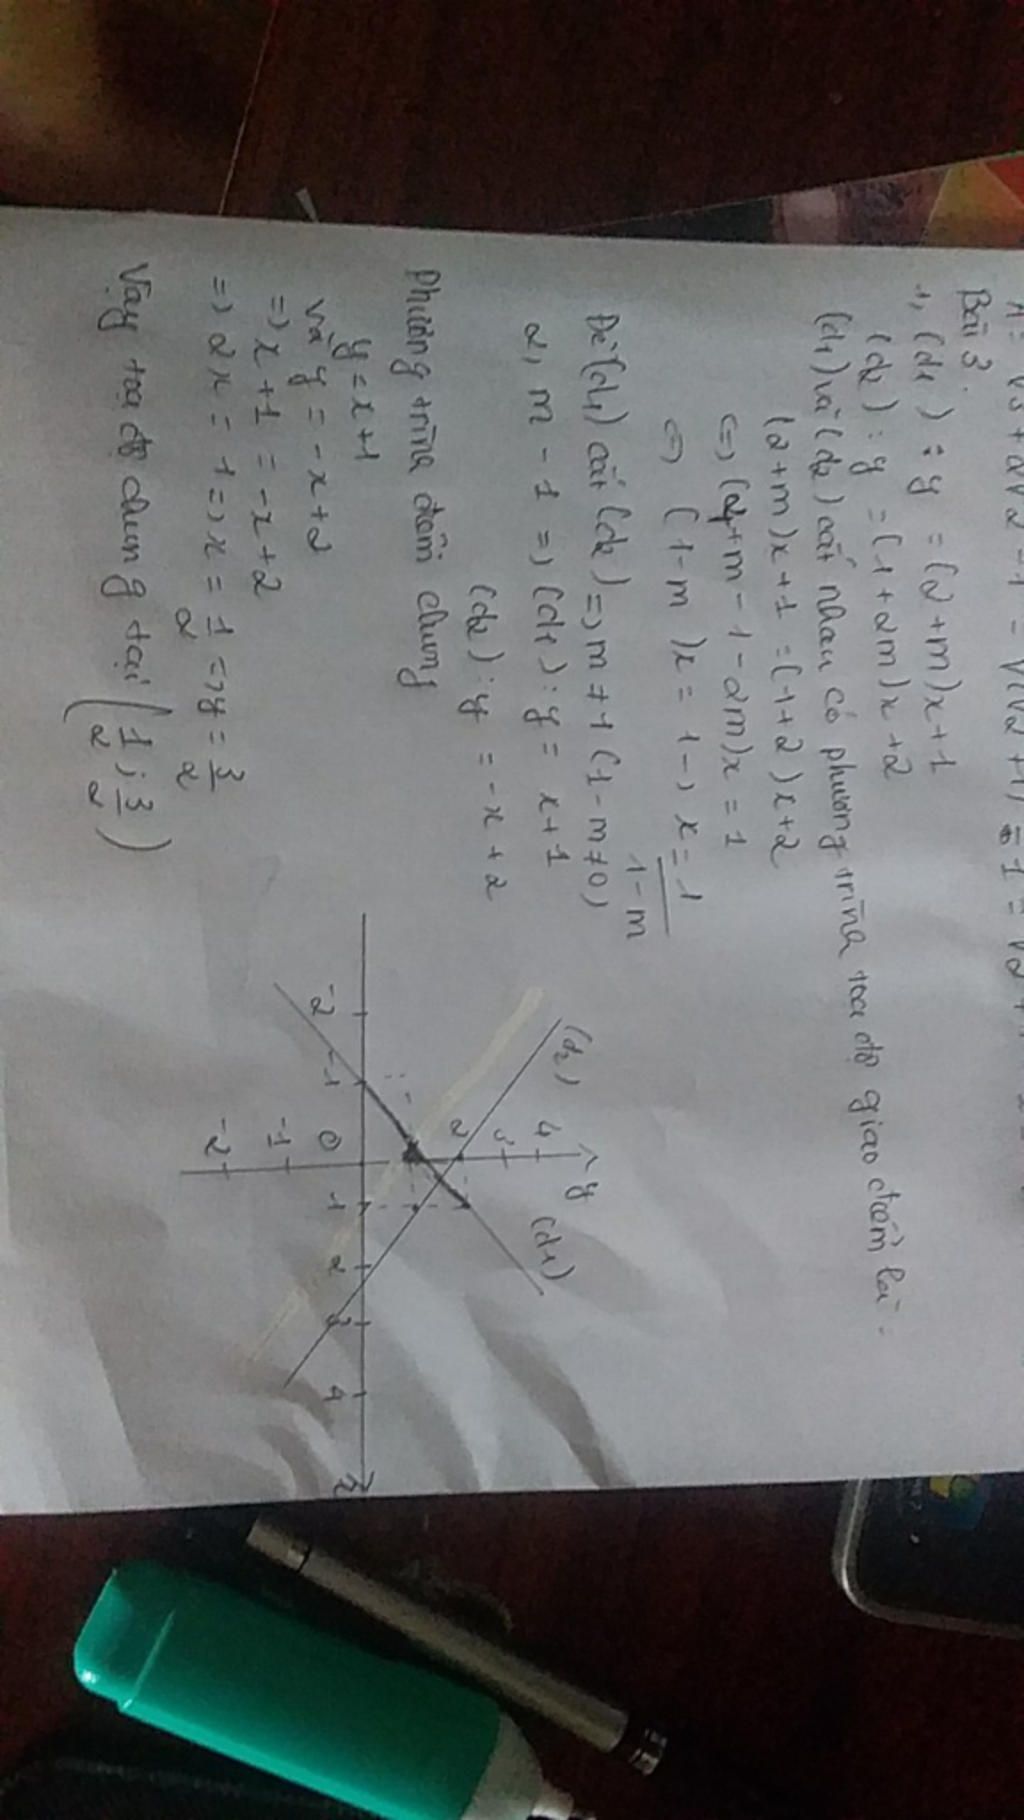 Bài 3.
1, (d1) : y = (2+m)x+1
(d2) : y = (1+2m)x+2
(d1) và (d2) cắt nhau có phương trình toạ độ giao điểm là
(2+m)x+1 = (1+2)x+2
<=> (2+m-1-2m)x = 1
<=> (1-m)x = 1 -> x = 1/(1-m)
Để (d1) cắt (d2) => m ≠ 1 (1-m≠0)
2, m-1 => (d1) : y = x+1
(d2) : y = -x+2
Phương trình điểm chung
y = x+1
và y = -x+2
=> x+1 = -x+2
=> 2x = 1 => x = 1/2 => y = 3/2
Vậy toạ độ chung tại (1/2 ; 3/2)
(d2) (d1)
y
4
2
-2 -1 0 1 2 3 4 x
-1
-2